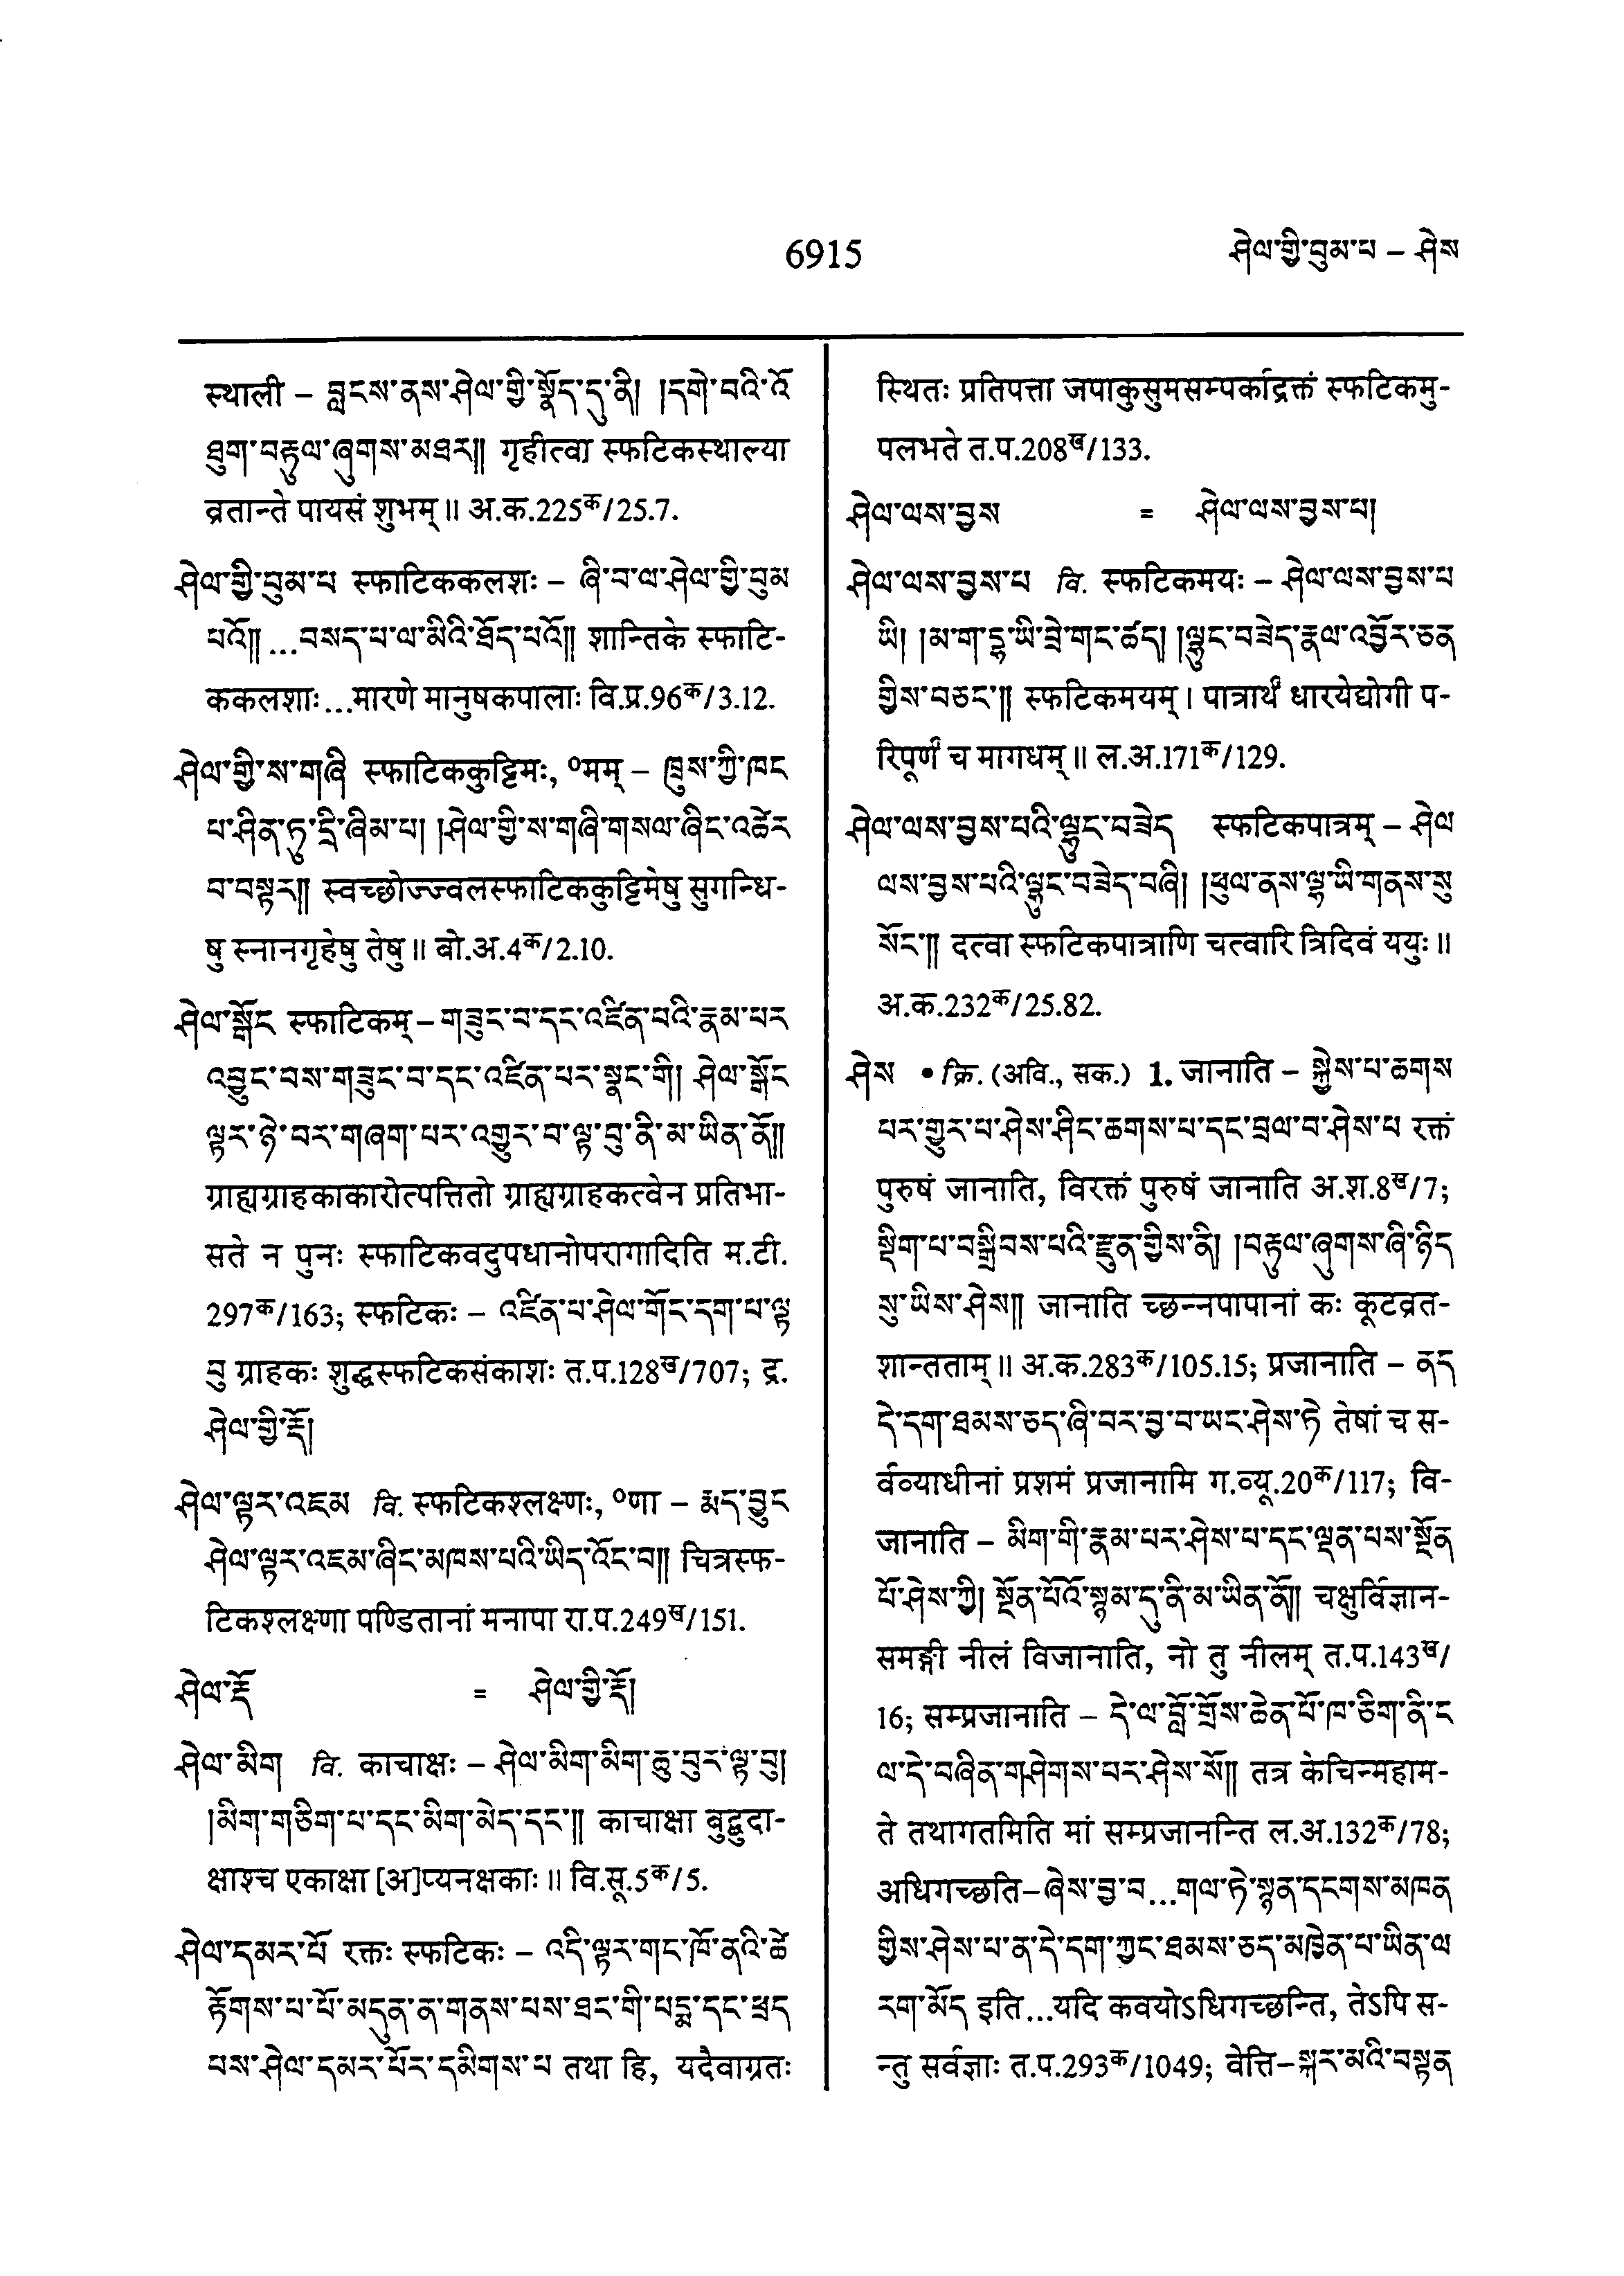 6915
ཤེལ་གྱི་བུམ་པ – ཤེས
स्थाली – བླངས་ནས་ཤེལ་གྱི་སྣོད་དུ་ནི། །དགེ་བའི་འོ
ཐུག་བརྟུལ་ཞུགས་མཐར།། गृहीत्वा स्फटिकस्थाल्या
व्रतान्ते पायसं शुभम् ॥ अ.क.225क/25.7.
ཤེལ་གྱི་བུམ་པ स्फाटिककलशः – ཞི་བ་ལ་ཤེལ་གྱི་བུམ
པའོ།། ...བསད་པ་ལ་མིའི་ཐོད་པའོ།། शान्तिके स्फाटि-
ककलशाः...मारणे मानुषकपालाः वि.प्र.96क/3.12.
ཤེལ་གྱི་ས་གཞི स्फाटिककुट्टिमः, ०मम् – ཁྲུས་ཀྱི་ཁང
པ་ཤིན་ཏུ་དྲི་ཞིམ་པ། །ཤེལ་གྱི་ས་གཞི་གསལ་ཞིང་འཚེར
བ་བསྟར།། स्वच्छोज्ज्वलस्फाटिककुट्टिमेषु सुगन्धि-
षु स्नानगृहेषु तेषु ॥ बो.अ.4क/2.10.
ཤེལ་སྒོང स्फाटिकम् – གཟུང་བ་དང་འཛིན་པའི་རྣམ་པར
འབྱུང་བས་གཟུང་བ་དང་འཛིན་པར་སྣང་གི། ཤེལ་སྒོང
ལྟར་ཉེ་བར་གཞག་པར་འགྱུར་བ་ལྟ་བུ་ནི་མ་ཡིན་ནོ།།
ग्राह्यग्राहकाकारोत्पत्तितो ग्राह्यग्राहकत्वेन प्रतिभा-
सते न पुनः स्फाटिकवदुपधानोपरागादिति म.टी.
297क/163; स्फटिकः – འཛིན་པ་ཤེལ་གོང་དག་པ་ལྟ
བུ ग्राहकः शुद्धस्फटिकसंकाशः त.प.128ख/707; द्र.
ཤེལ་གྱི་རྡོ།
ཤེལ་ལྟར་འཇམ वि. स्फटिकश्लक्ष्णः, ०णा – རྨད་བྱུང
ཤེལ་ལྟར་འཇམ་ཞིང་མཁས་པའི་ཡིད་འོང་བ།། चित्रस्फ-
टिकश्लक्ष्णा पण्डितानां मनापा रा.प.249ख/151.
ཤེལ་རྡོ = ཤེལ་གྱི་རྡོ།
ཤེལ་མིག वि. काचाक्षः – ཤེལ་མིག་མིག་ཆུ་བུར་ལྟ་བུ།
།མིག་གཅིག་པ་དང་མིག་མེད་དང་།། काचाक्षा बुद्बुदा-
क्षाश्च एकाक्षा [अ]प्यनक्षकाः ॥ वि.सू.5क/5.
ཤེལ་དམར་པོ रक्तः स्फटिकः – འདི་ལྟར་གང་ཁོ་ནའི་ཚེ
རྟོགས་པ་པོ་མདུན་ན་གནས་པས་ཐང་གི་པདྨ་དང་ཕྲད
པས་ཤེལ་དམར་པོར་དམིགས་པ तथा हि, यदैवाग्रतः
स्थितः प्रतिपत्ता जपाकुसुमसम्पर्काद्रक्तं स्फटिकमु-
पलभते त.प.208ख/133.
ཤེལ་ལས་བྱས = ཤེལ་ལས་བྱས་པ།
ཤེལ་ལས་བྱས་པ वि. स्फटिकमयः – ཤེལ་ལས་བྱས་པ
ཡི། །མ་ག་དྷ་ཡི་བྲེ་གང་ཚད། །ལྷུང་བཟེད་རྣལ་འབྱོར་ཅན
གྱིས་བཅང་།། स्फटिकमयम् । पात्रार्थं धारयेद्योगी प-
रिपूर्णं च मागधम् ॥ ल.अ.171क/129.
ཤེལ་ལས་བྱས་པའི་ལྷུང་བཟེད स्फटिकपात्रम् – ཤེལ
ལས་བྱས་པའི་ལྷུང་བཟེད་བཞི། །ཕུལ་ནས་ལྷ་ཡི་གནས་སུ
སོང་།། दत्वा स्फटिकपात्राणि चत्वारि त्रिदिवं ययुः ॥
अ.क.232क/25.82.
ཤེས • क्रि. (अवि., सक.) 1. जानाति – སྐྱེས་པ་ཆགས
པར་གྱུར་པ་ཤེས་ཤིང་ཆགས་པ་དང་བྲལ་བ་ཤེས་པ रक्तं
पुरुषं जानाति, विरक्तं पुरुषं जानाति अ.श.8ख/7;
སྡིག་པ་བསྒྲིབས་པའི་རྫུན་གྱིས་ནི། །བརྟུལ་ཞུགས་ཞི་ཉིད
སུ་ཡིས་ཤེས།། जानाति च्छन्नपापानां कः कूटव्रत-
शान्तताम् ॥ अ.क.283क/105.15; प्रजानाति – ནད
དེ་དག་ཐམས་ཅད་ཞི་བར་བྱ་བ་ཡང་ཤེས་ཏེ तेषां च स-
र्वव्याधीनां प्रशमं प्रजानामि ग.व्यू.20क/117; वि-
जानाति – མིག་གི་རྣམ་པར་ཤེས་པ་དང་ལྡན་པས་སྔོན
པོ་ཤེས་ཀྱི། སྔོན་པོའོ་སྙམ་དུ་ནི་མ་ཡིན་ནོ།། चक्षुर्विज्ञान-
समङ्गी नीलं विजानाति, नो तु नीलम् त.प.143ख/
16; सम्प्रजानाति – དེ་ལ་བློ་གྲོས་ཆེན་པོ་ཁ་ཅིག་ནི་ང
ལ་དེ་བཞིན་གཤེགས་པར་ཤེས་སོ།། तत्र केचिन्महाम-
ते तथागतमिति मां सम्प्रजानन्ति ल.अ.132क/78;
अधिगच्छति – ཞེས་བྱ་བ...གལ་ཏེ་སྙན་དངགས་མཁན
གྱིས་ཤེས་པ་ན་དེ་དག་ཀྱང་ཐམས་ཅད་མཁྱེན་པ་ཡིན་ལ
རག་མོད इति...यदि कवयोऽधिगच्छन्ति, तेऽपि स-
न्तु सर्वज्ञाः त.प.293क/1049; वेत्ति – སྐར་མའི་བསྟན